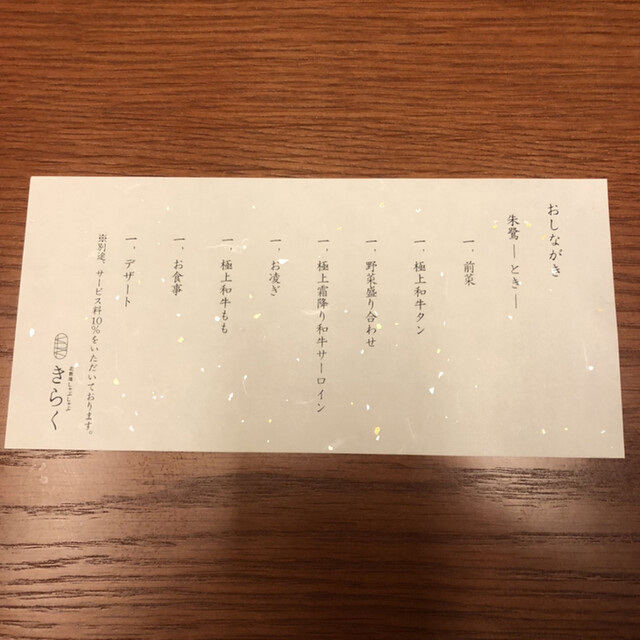 おしながき
朱鷺 ―とき―
一、前菜
一、極上和牛タン
一、野菜盛り合わせ
一、極上霜降り和牛サーロイン
一、お凌ぎ
一、極上和牛もも
一、お食事
一、デザート
※別途、サービス料10%をいただいております。
きらく